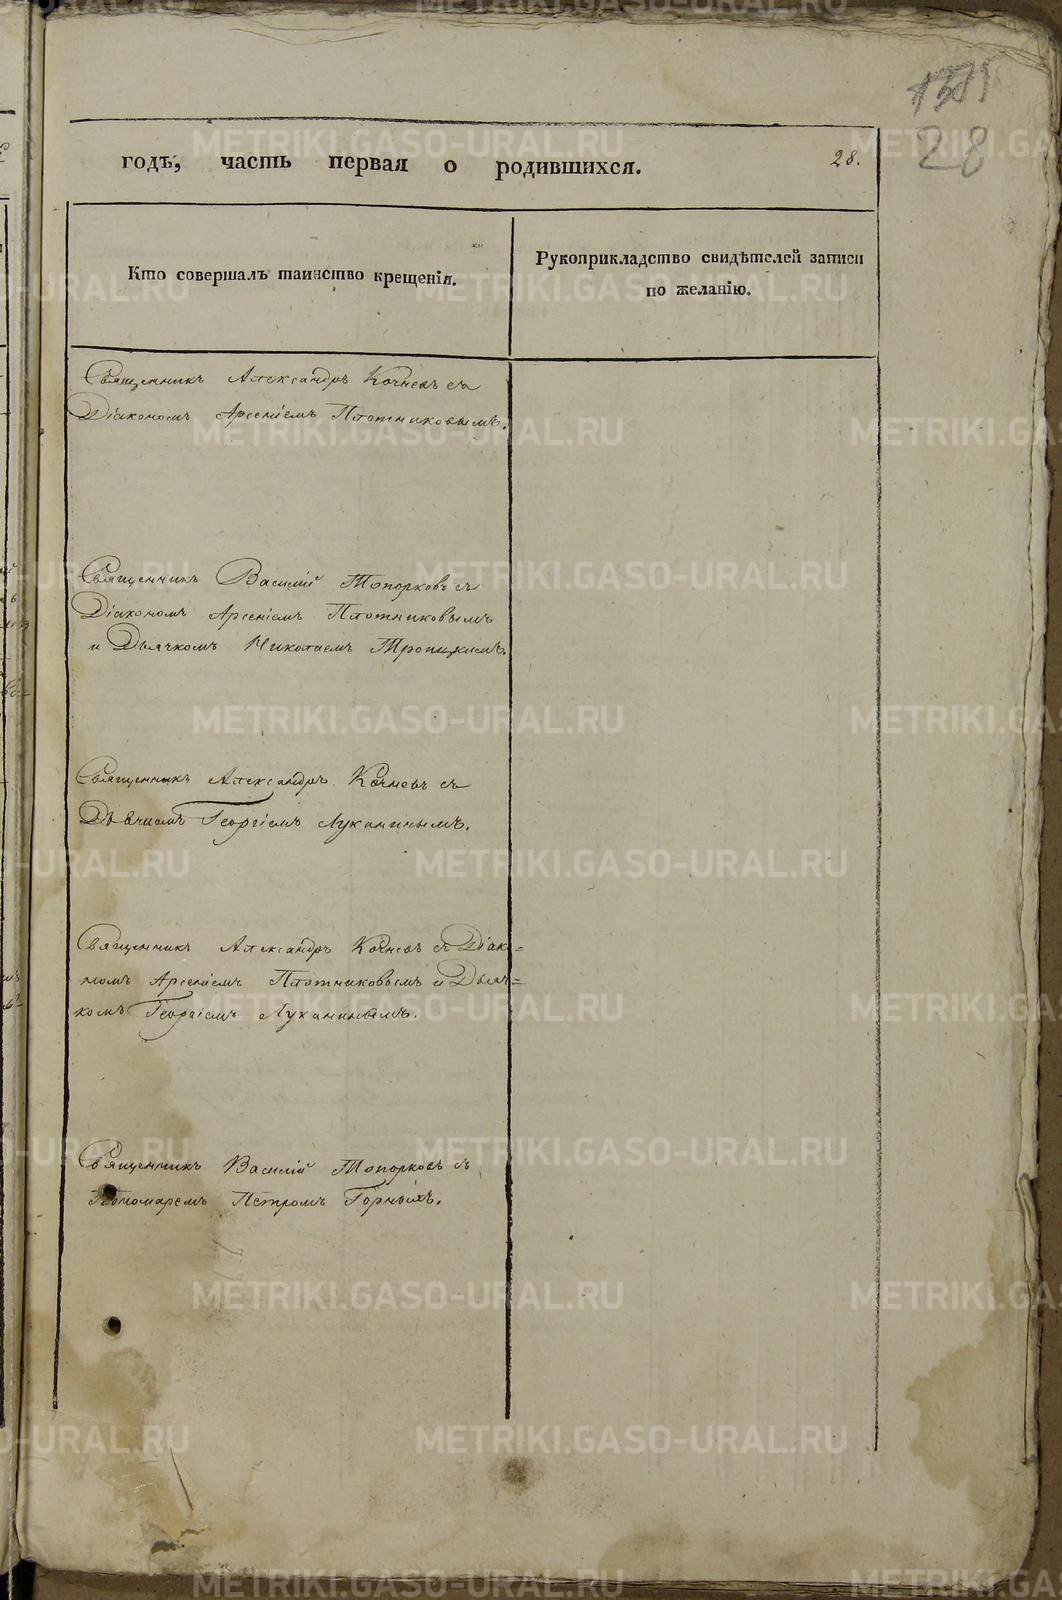 28
годѣ, часть первая о родившихся.
28.
Кто совершалъ таинство крещенія.
Рукоприкладство свидѣтелей записи
по желанію.
Священникъ Александръ Кочневъ съ
Діакономъ Арсеніемъ Плотниковымъ.
Священникъ Василій Топорковъ съ
Діакономъ Арсеніемъ Плотниковымъ
и Дьячкомъ Николаемъ Троицкимъ.
Священникъ Александръ Кочневъ съ
Дьячкомъ Георгіемъ Луканинымъ.
Священникъ Александръ Кочневъ съ Діако=
номъ Арсеніемъ Плотниковымъ и Дьяч=
комъ Георгіемъ Луканинымъ.
Священникъ Василій Топорковъ съ
Пономаремъ Петромъ Горныхъ.
METRIKI.GASO-URAL.RU